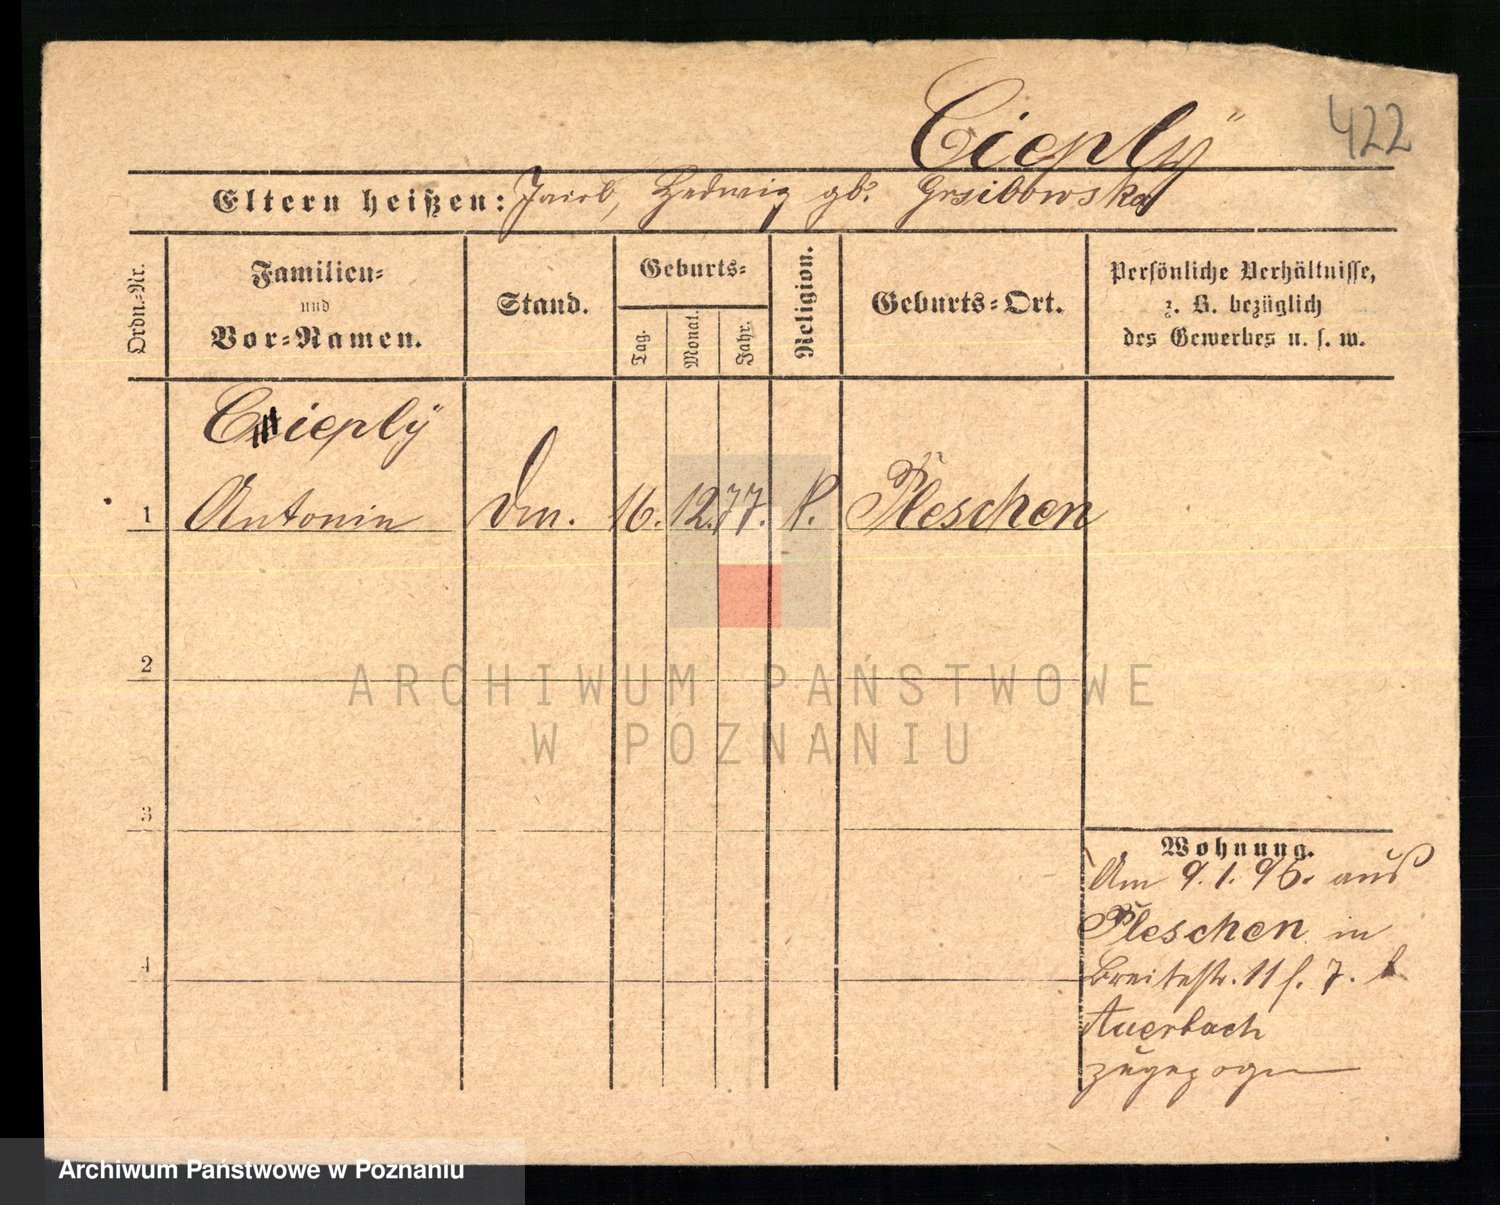 Cieplÿ
422
Eltern heißen: Jacob, Hedwig gb. Grsibowska
Ordn.-Nr.
Familien-
und
Vor-Namen.
Stand.
Geburts-
Tag.
Monat.
Jahr.
Religion.
Geburts-Ort.
Persönliche Verhältnisse,
z. B. bezüglich
des Gewerbes u. s. w.
Cieplÿ
1 Antonin Dm. 16. 12. 77. k. Pleschen
2
3
4
Wohnung.
Am 9. 1. 96. aus
Pleschen in
Breitestr. 11 f. 7. b
Auerbach
zugezogen
ARCHIWUM PAŃSTWOWE
W POZNANIU
Archiwum Państwowe w Poznaniu